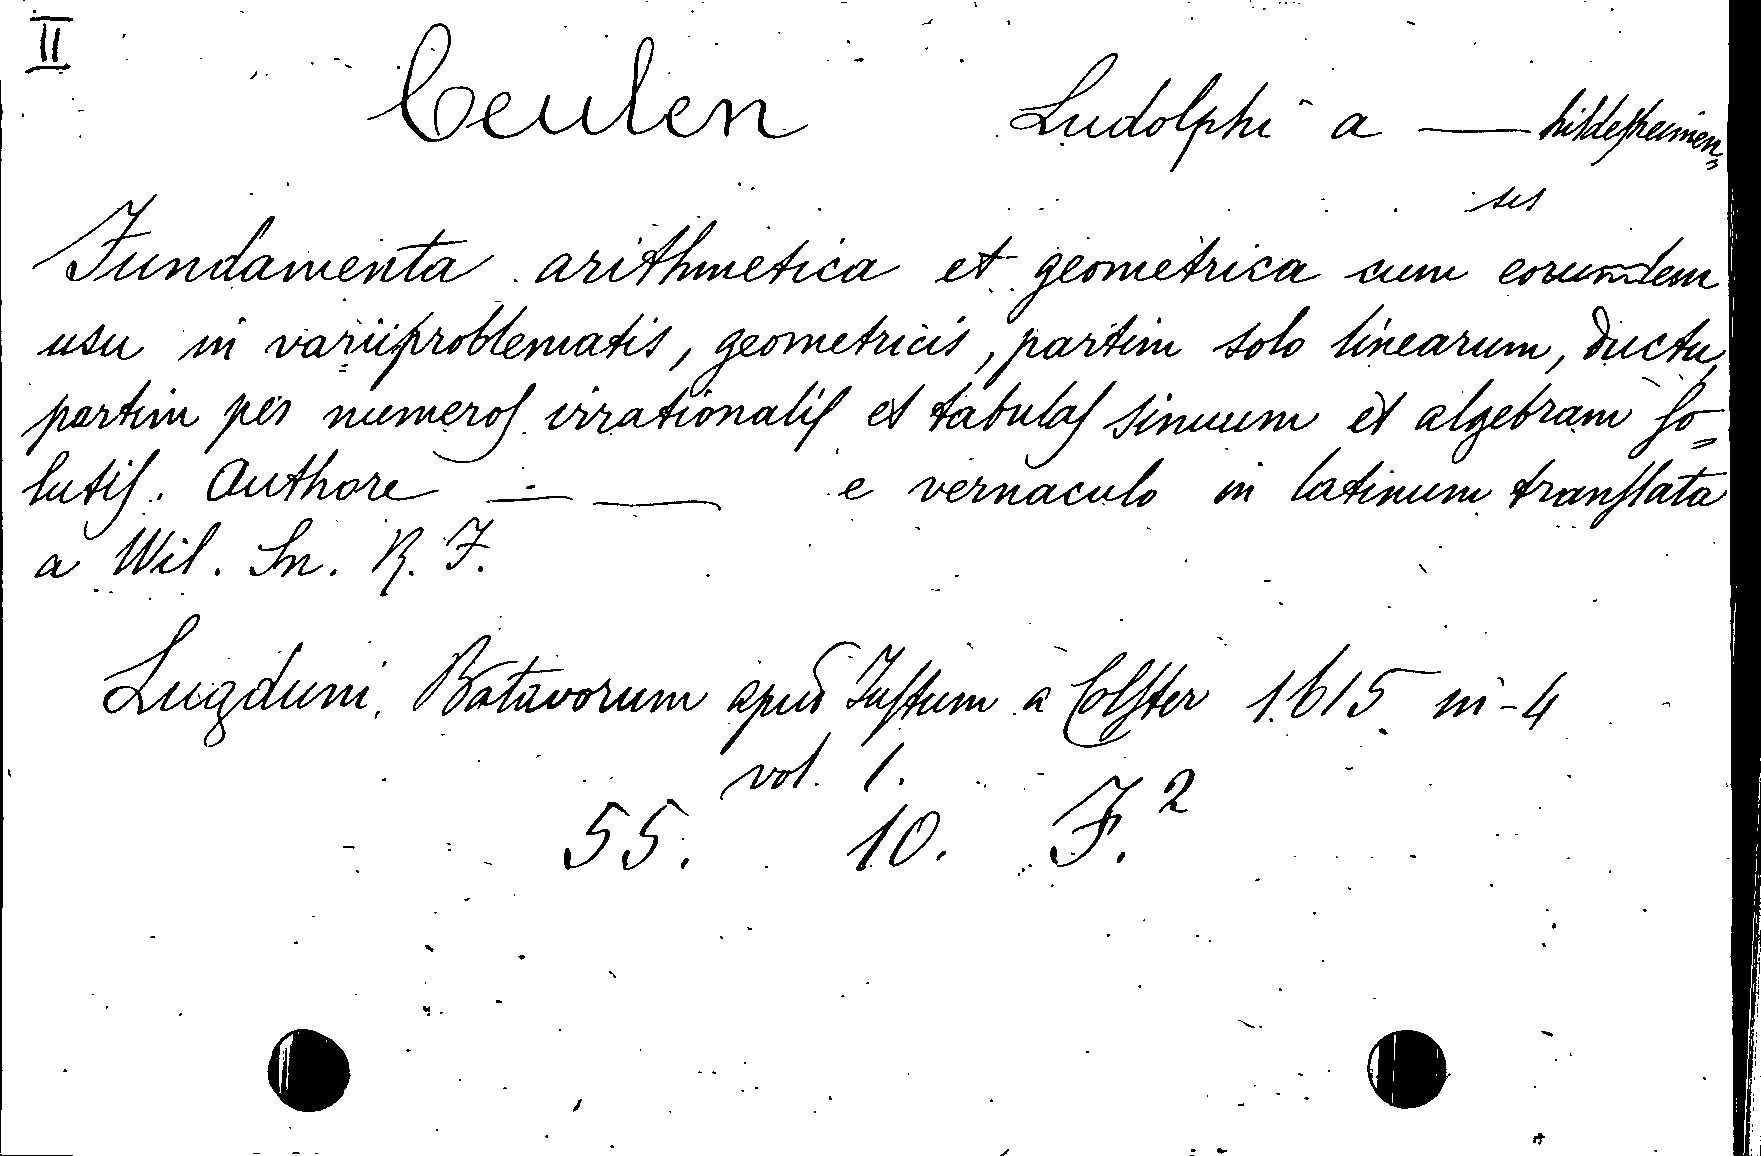 II
Ceulen Ludolphi a — hildesheimen=
ses
Fundamenta arithmetica et geometrica cum eorumdem
usu in variiproblematis, geometricis, partim solo linearum, ductu,
partim per numeros irrationalis et tabulas sinuum et algebram so=
lutis. Authore — — e vernaculo in latinum translata
a Wil. Sn. R. F.
Lugduni Batavorum apud Justum a Colster 1615 in-4
vol. 1.
55. 10. F.²